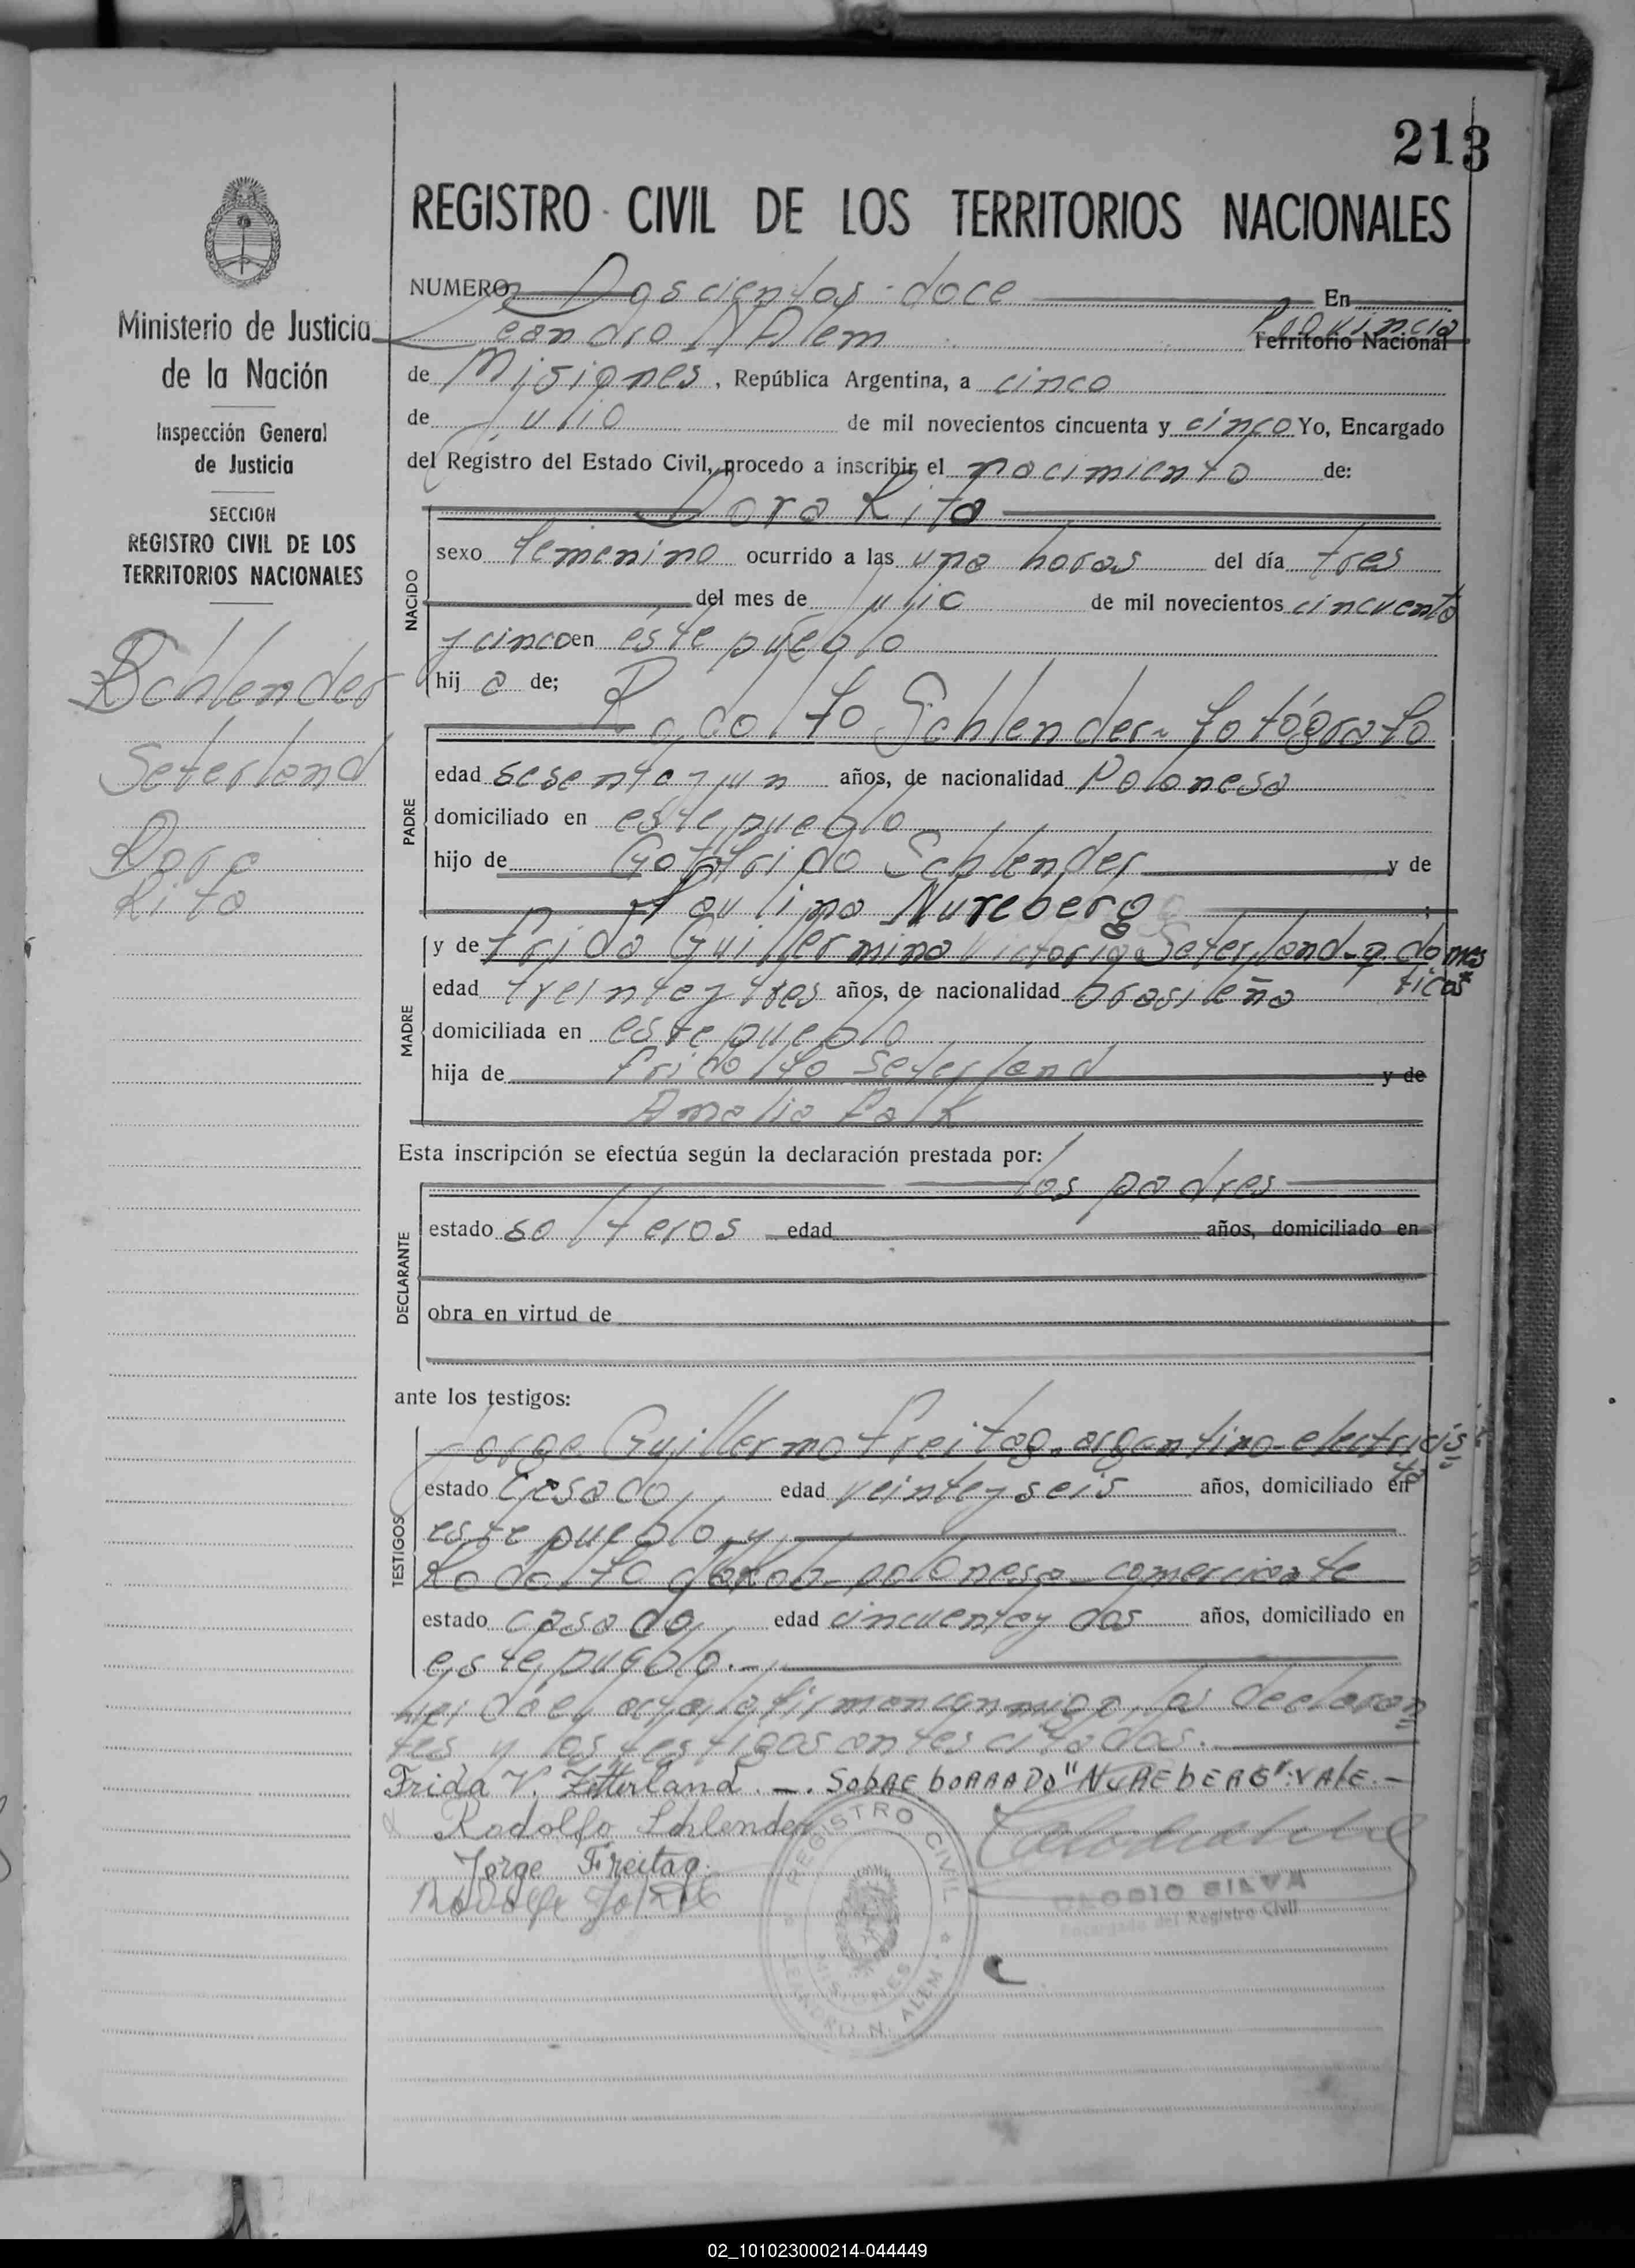 213
REGISTRO CIVIL DE LOS TERRITORIOS NACIONALES
Ministerio de Justicia
de la Nación
Inspección General
de Justicia
SECCION
REGISTRO CIVIL DE LOS
TERRITORIOS NACIONALES
Schlender
Seterland
Dora
Rita
NUMERO Doscientos doce En
Leandro N Alem Provincia Territorio Nacional
de Misiones, República Argentina, a cinco
de julio de mil novecientos cincuenta y cinco Yo, Encargado
del Registro del Estado Civil, procedo a inscribir el nacimiento de:
Dora Rita
NACIDO
sexo femenino ocurrido a las una horas del día tres
del mes de julio de mil novecientos cincuenta
y cinco en este pueblo
hij a de;
Rodolfo Schlender- fotógrafo
PADRE
edad sesenta y un años, de nacionalidad Polonesa
domiciliado en este pueblo
hijo de Gotfrido Schlender y de
Paulina Nureberg
MADRE
y de Frida Guillermina Victoria Seterland- q. domes
ticos
edad treinta y tres años, de nacionalidad brasileña
domiciliada en este pueblo
hija de Fridolfo Seterland y de
Amalia Falk
Esta inscripción se efectúa según la declaración prestada por:
los padres
DECLARANTE
estado solteros edad años, domiciliado en
obra en virtud de
ante los testigos:
TESTIGOS
Jorge Guillermo Freitag. argentino- electricis
ta
estado casado edad veinte y seis años, domiciliado en
este pueblo y
Rodolfo polonesa- comerciante
estado casado edad cincuenta y dos años, domiciliado en
este pueblo.-
Leida el acta, la firman conmigo, los declaran
tes y los testigos antes citados.
Frida V. Zetterland .—. SobRE bORRADO "NUREbERG": VAlE.-
Rodolfo Schlender
Jorge Freitag.
Rodolfo
REGISTRO CIVIL
MISIONES
LEANDRO N. ALEM
CLODIO SILVA
Encargado del Registro Civil
02_101023000214-044449